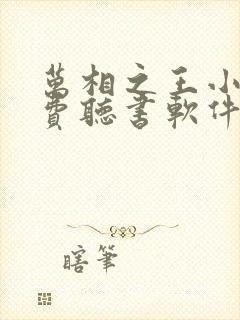 萬相之王小
費聽書軟件
瞎筆